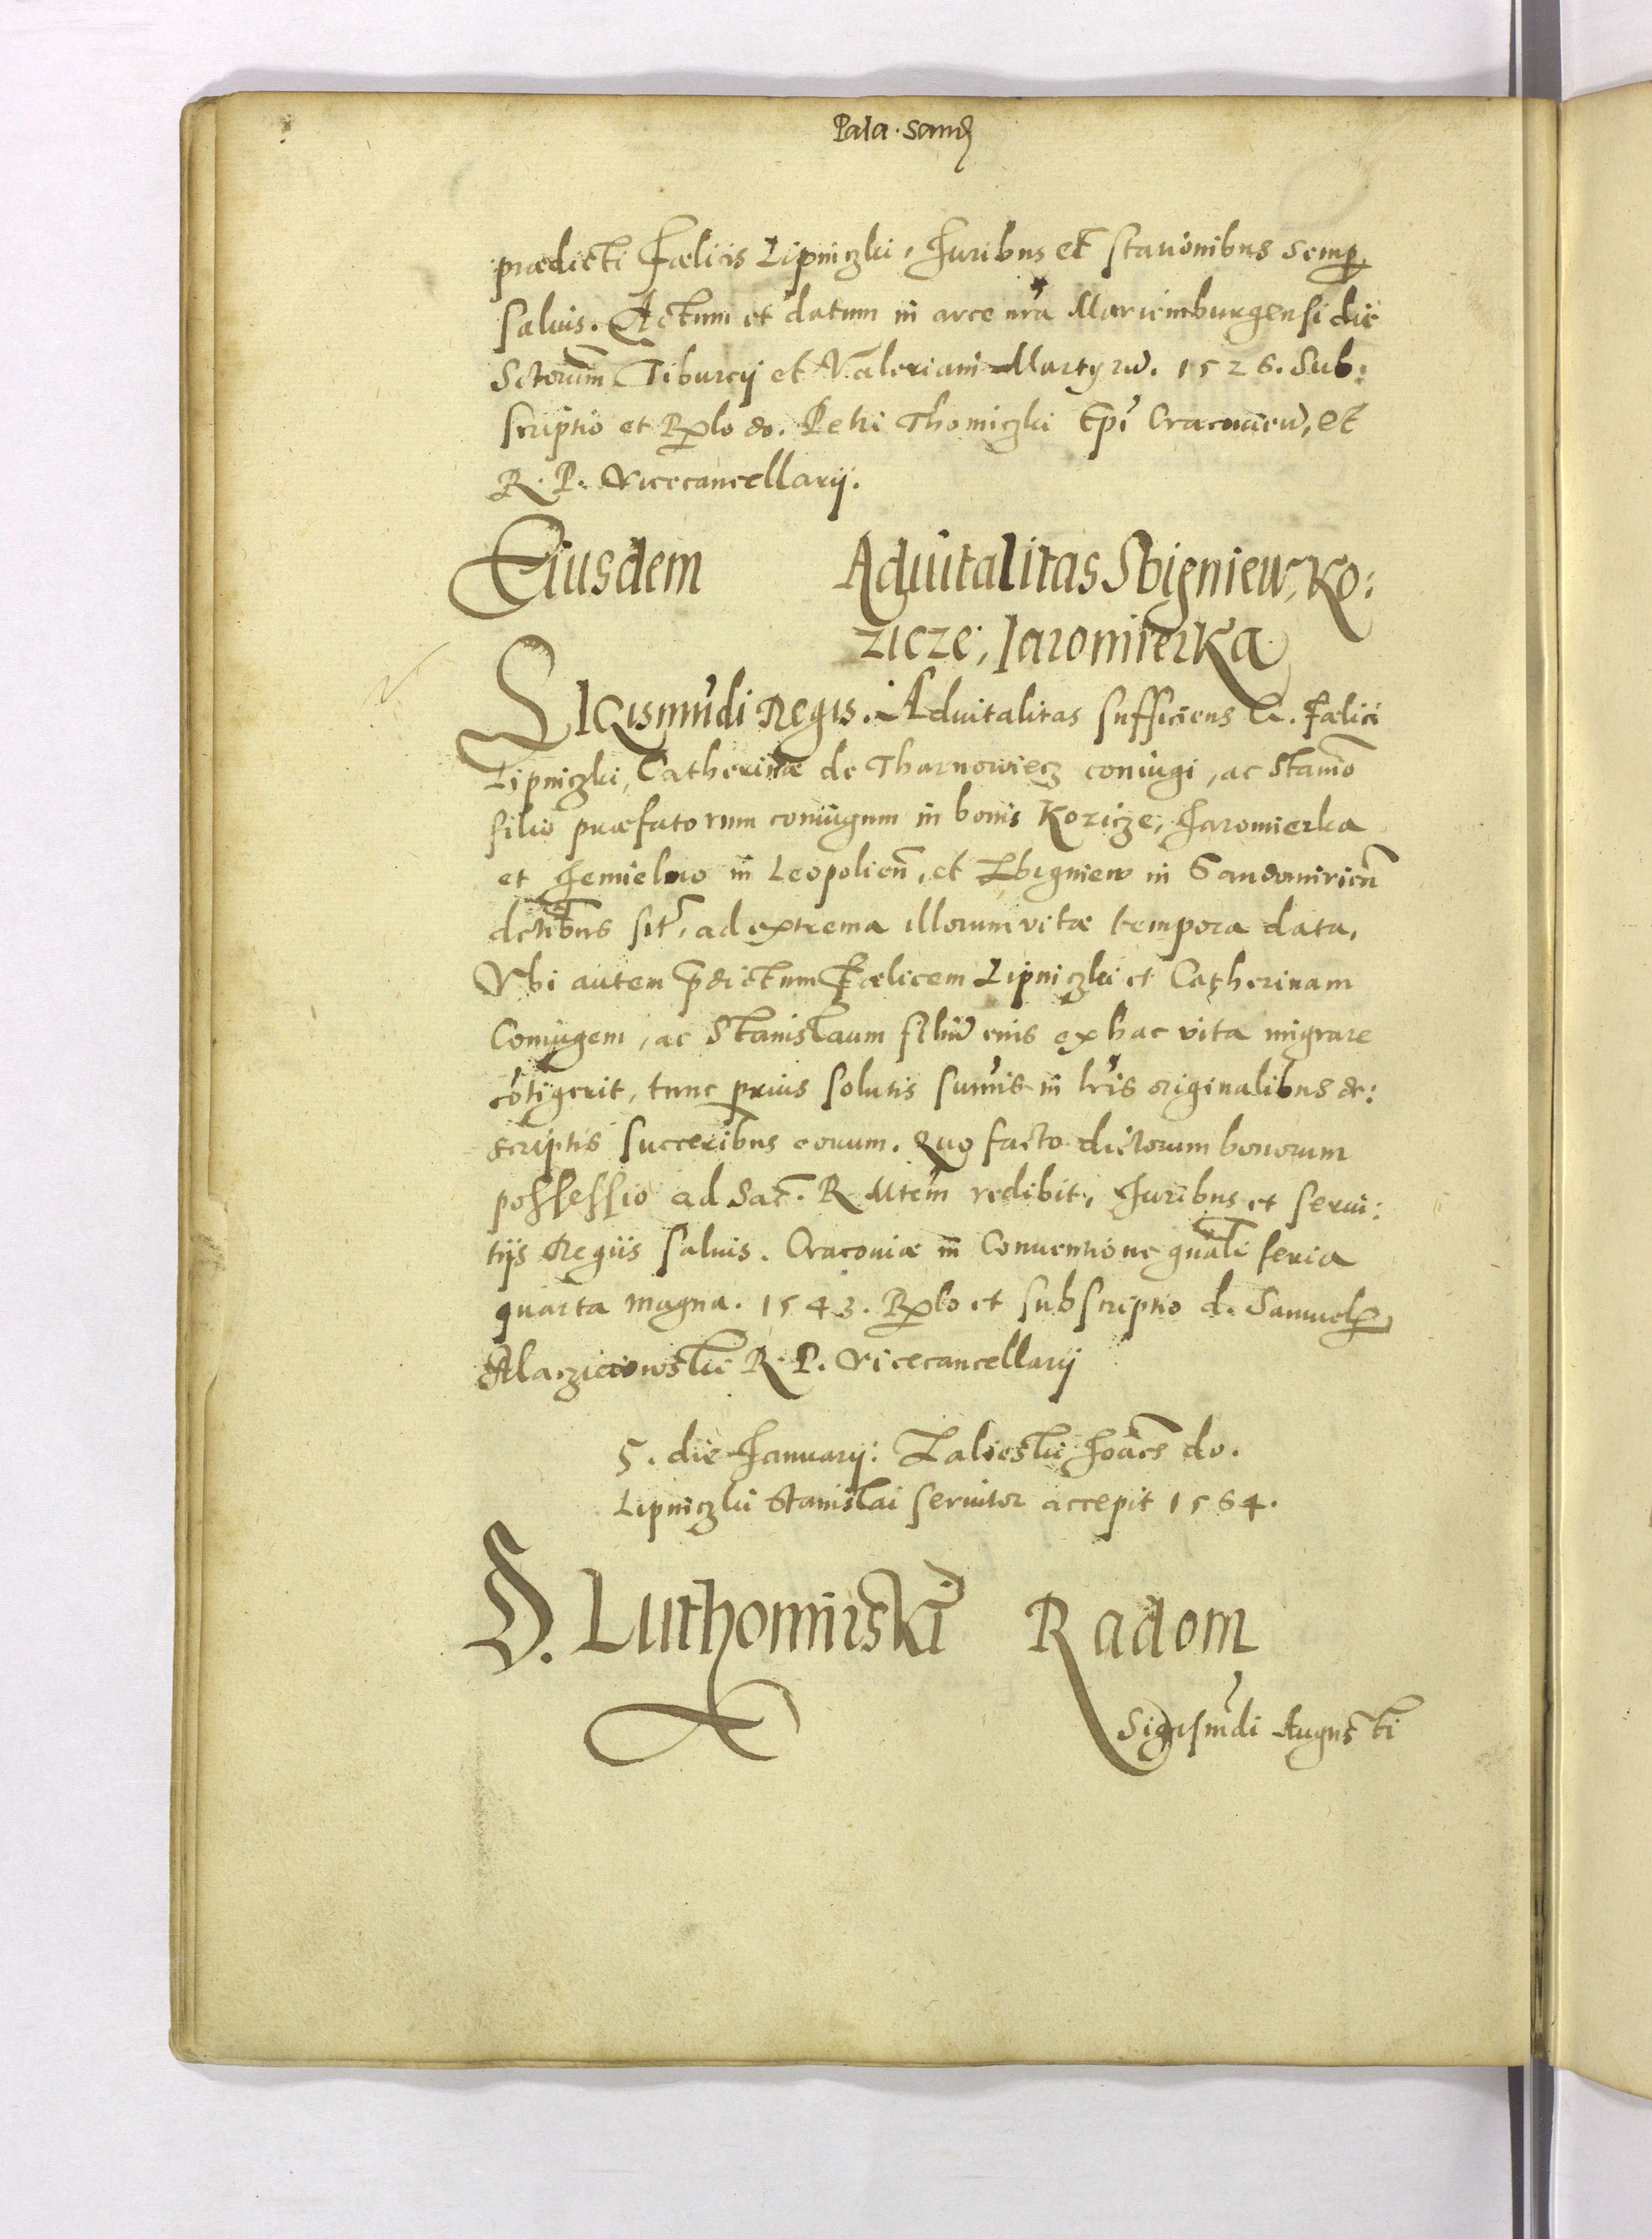 Pala. Sand
prædicti Fælicis Lipniczki, Juribus et stationibus semp
saluis. Actum et datum in arce nra Mariemburgensi die
Sctorum Tiburcij et Valeriani Martyrũ. 1526. Sub:
scriptio et Rplo do. Petri Thomiczki Epi Cracouieñ, et
R. P. Vicecancellarij.
Eiusdem Aduitalitas Sbigniew, Ko:
zicze, Jaromierka
SIGismũdi Regis. Aduitalitas sufficiens G. Fælici
Lipniczki, Catherinæ de Tharnowiecz coniugi, ac Stanio
filio præfatorum coniugum in bonis Kozicze, Jaromierka
et Jemielno in Leopolien, et Zbigniew in Sandomirien
dctibus sit, ad extrema illorum vitæ tempora data,
Vbi autem pdictum Fælicem Lipniczki et Catherinam
Coniugem, ac Stanislaum filiũ eius ex hac vita migrare
cõtigerit, tunc prius solutis sumis in lris originalibus de:
scriptis succeribus eorum. Quo facto dictorum bonorum
possessio ad Sac. R Mtem redibit, Juribus et serui:
tijs Regiis saluis. Cracouiæ in Conuentione gnali feria
quarta magna. 1543. Rplo et subscriptio d. Samuelis
Maczieiowski R. P. Vicecancellarij
5. die Januarij: Zalieski Joacs do.
Lipniczki Stanislai seruitor accepit 1564.
S. Luthomirski Radom
Sigismũdi Augusti